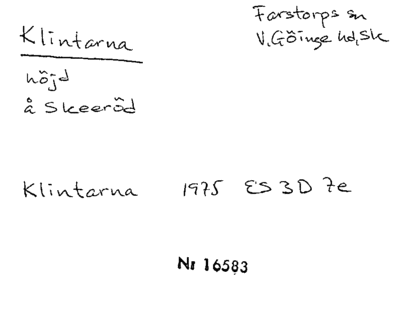 Klintarna
Farstorps sn
V. Göinge hd, Sk
höjd
å Skeeröd
Klintarna 1975 ES 3D 7e
Nr 16583